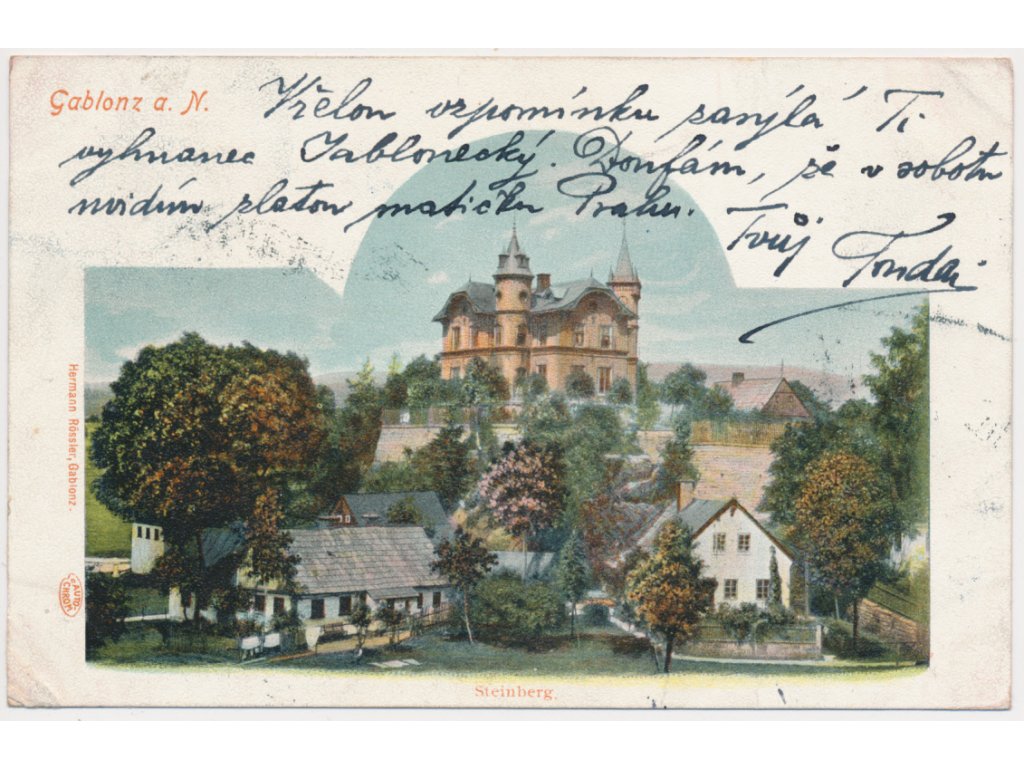 Gablonz a. N.
Vřelou vzpomínku zasýlá Ti
vyhnanec Jablonecký. Doufám, že v sobotu
uvidím zlatou matičku Prahu. Tvůj
Tonda
Hermann Rössler, Gablonz.
AUTO-
CHROM
Steinberg.